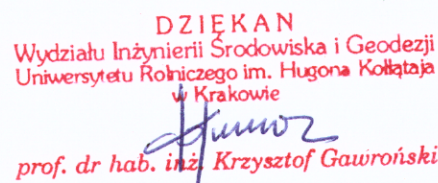 DZIEKAN
Wydziału Inżynierii Środowiska i Geodezji
Uniwersytetu Rolniczego im. Hugona Kołłątaja
w Krakowie
prof. dr hab. inż. Krzysztof Gawroński